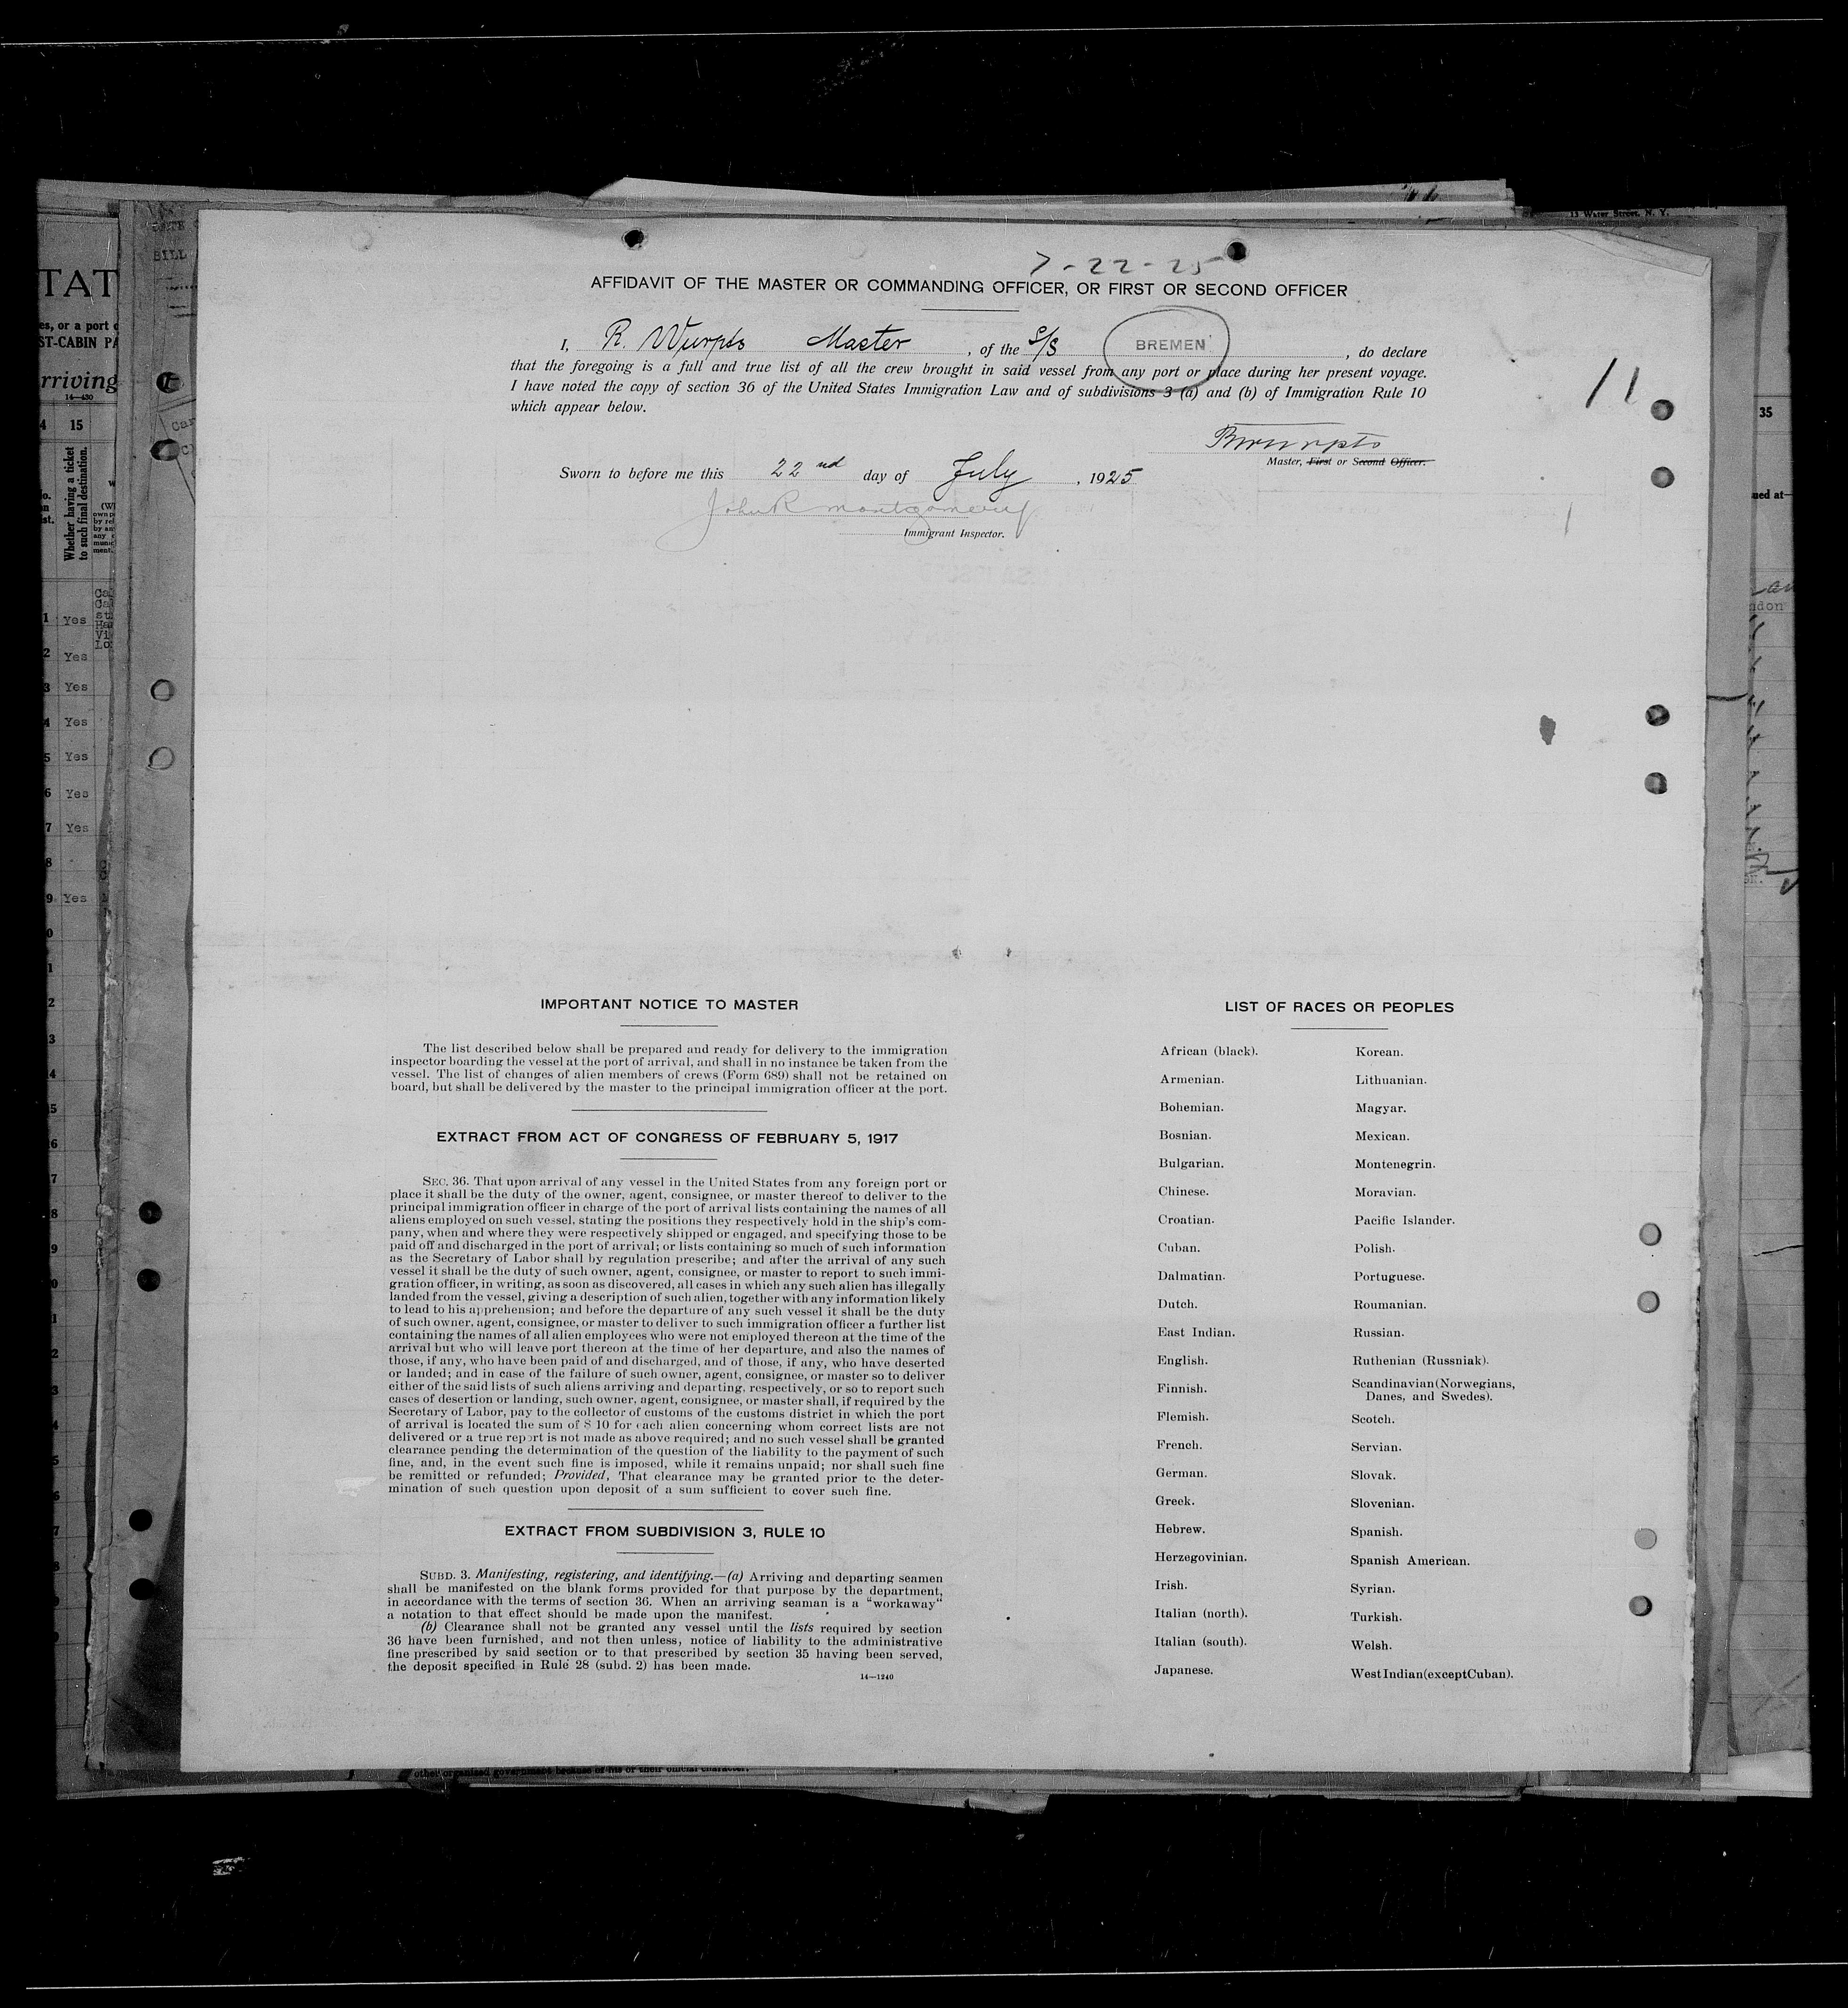 13 Water Street, N. Y.
DATE
BILL
TAT
es, or a port o
ST-CABIN PA
rriving
14—430
4 15
Whether having a ticket
to such final destination.
1 Yes
2 Yes
3 Yes
4 Yes
5 Yes
6 Yes
7 Yes
8
9 Yes
35
ued at—
ndon
7-22-25
AFFIDAVIT OF THE MASTER OR COMMANDING OFFICER, OR FIRST OR SECOND OFFICER
I, R. Wurpts Master, of the S/S BREMEN, do declare
that the foregoing is a full and true list of all the crew brought in said vessel from any port or place during her present voyage.
I have noted the copy of section 36 of the United States Immigration Law and of subdivisions 3 (a) and (b) of Immigration Rule 10
which appear below.
11
RWurpts
Master, First or Second Officer.
Sworn to before me this 22nd day of July, 1925
John R Montgomery
Immigrant Inspector.
IMPORTANT NOTICE TO MASTER
The list described below shall be prepared and ready for delivery to the immigration
inspector boarding the vessel at the port of arrival, and shall in no instance be taken from the
vessel. The list of changes of alien members of crews (Form 689) shall not be retained on
board, but shall be delivered by the master to the principal immigration officer at the port.
EXTRACT FROM ACT OF CONGRESS OF FEBRUARY 5, 1917
SEC. 36. That upon arrival of any vessel in the United States from any foreign port or
place it shall be the duty of the owner, agent, consignee, or master thereof to deliver to the
principal immigration officer in charge of the port of arrival lists containing the names of all
aliens employed on such vessel, stating the positions they respectively hold in the ship's com-
pany, when and where they were respectively shipped or engaged, and specifying those to be
paid off and discharged in the port of arrival; or lists containing so much of such information
as the Secretary of Labor shall by regulation prescribe; and after the arrival of any such
vessel it shall be the duty of such owner, agent, consignee, or master to report to such immi-
gration officer, in writing, as soon as discovered, all cases in which any such alien has illegally
landed from the vessel, giving a description of such alien, together with any information likely
to lead to his apprehension; and before the departure of any such vessel it shall be the duty
of such owner, agent, consignee, or master to deliver to such immigration officer a further list
containing the names of all alien employees who were not employed thereon at the time of the
arrival but who will leave port thereon at the time of her departure, and also the names of
those, if any, who have been paid of and discharged, and of those, if any, who have deserted
or landed; and in case of the failure of such owner, agent, consignee, or master so to deliver
either of the said lists of such aliens arriving and departing, respectively, or so to report such
cases of desertion or landing, such owner, agent, consignee, or master shall, if required by the
Secretary of Labor, pay to the collector of customs of the customs district in which the port
of arrival is located the sum of $ 10 for each alien concerning whom correct lists are not
delivered or a true report is not made as above required; and no such vessel shall be granted
clearance pending the determination of the question of the liability to the payment of such
fine, and, in the event such fine is imposed, while it remains unpaid; nor shall such fine
be remitted or refunded; Provided, That clearance may be granted prior to the deter-
mination of such question upon deposit of a sum sufficient to cover such fine.
EXTRACT FROM SUBDIVISION 3, RULE 10
SUBD. 3. Manifesting, registering, and identifying.—(a) Arriving and departing seamen
shall be manifested on the blank forms provided for that purpose by the department,
in accordance with the terms of section 36. When an arriving seaman is a "workaway"
a notation to that effect should be made upon the manifest.
(b) Clearance shall not be granted any vessel until the lists required by section
36 have been furnished, and not then unless, notice of liability to the administrative
fine prescribed by said section or to that prescribed by section 35 having been served,
the deposit specified in Rule 28 (subd. 2) has been made.
14—1240
LIST OF RACES OR PEOPLES
African (black).
Armenian.
Bohemian.
Bosnian.
Bulgarian.
Chinese.
Croatian.
Cuban.
Dalmatian.
Dutch.
East Indian.
English.
Finnish.
Flemish.
French.
German.
Greek.
Hebrew.
Herzegovinian.
Irish.
Italian (north).
Italian (south).
Japanese.
Korean.
Lithuanian.
Magyar.
Mexican.
Montenegrin.
Moravian.
Pacific Islander.
Polish.
Portuguese.
Roumanian.
Russian.
Ruthenian (Russniak).
Scandinavian (Norwegians,
Danes, and Swedes).
Scotch.
Servian.
Slovak.
Slovenian.
Spanish.
Spanish American.
Syrian.
Turkish.
Welsh.
West Indian (except Cuban).
other organized government because of his or their official character.